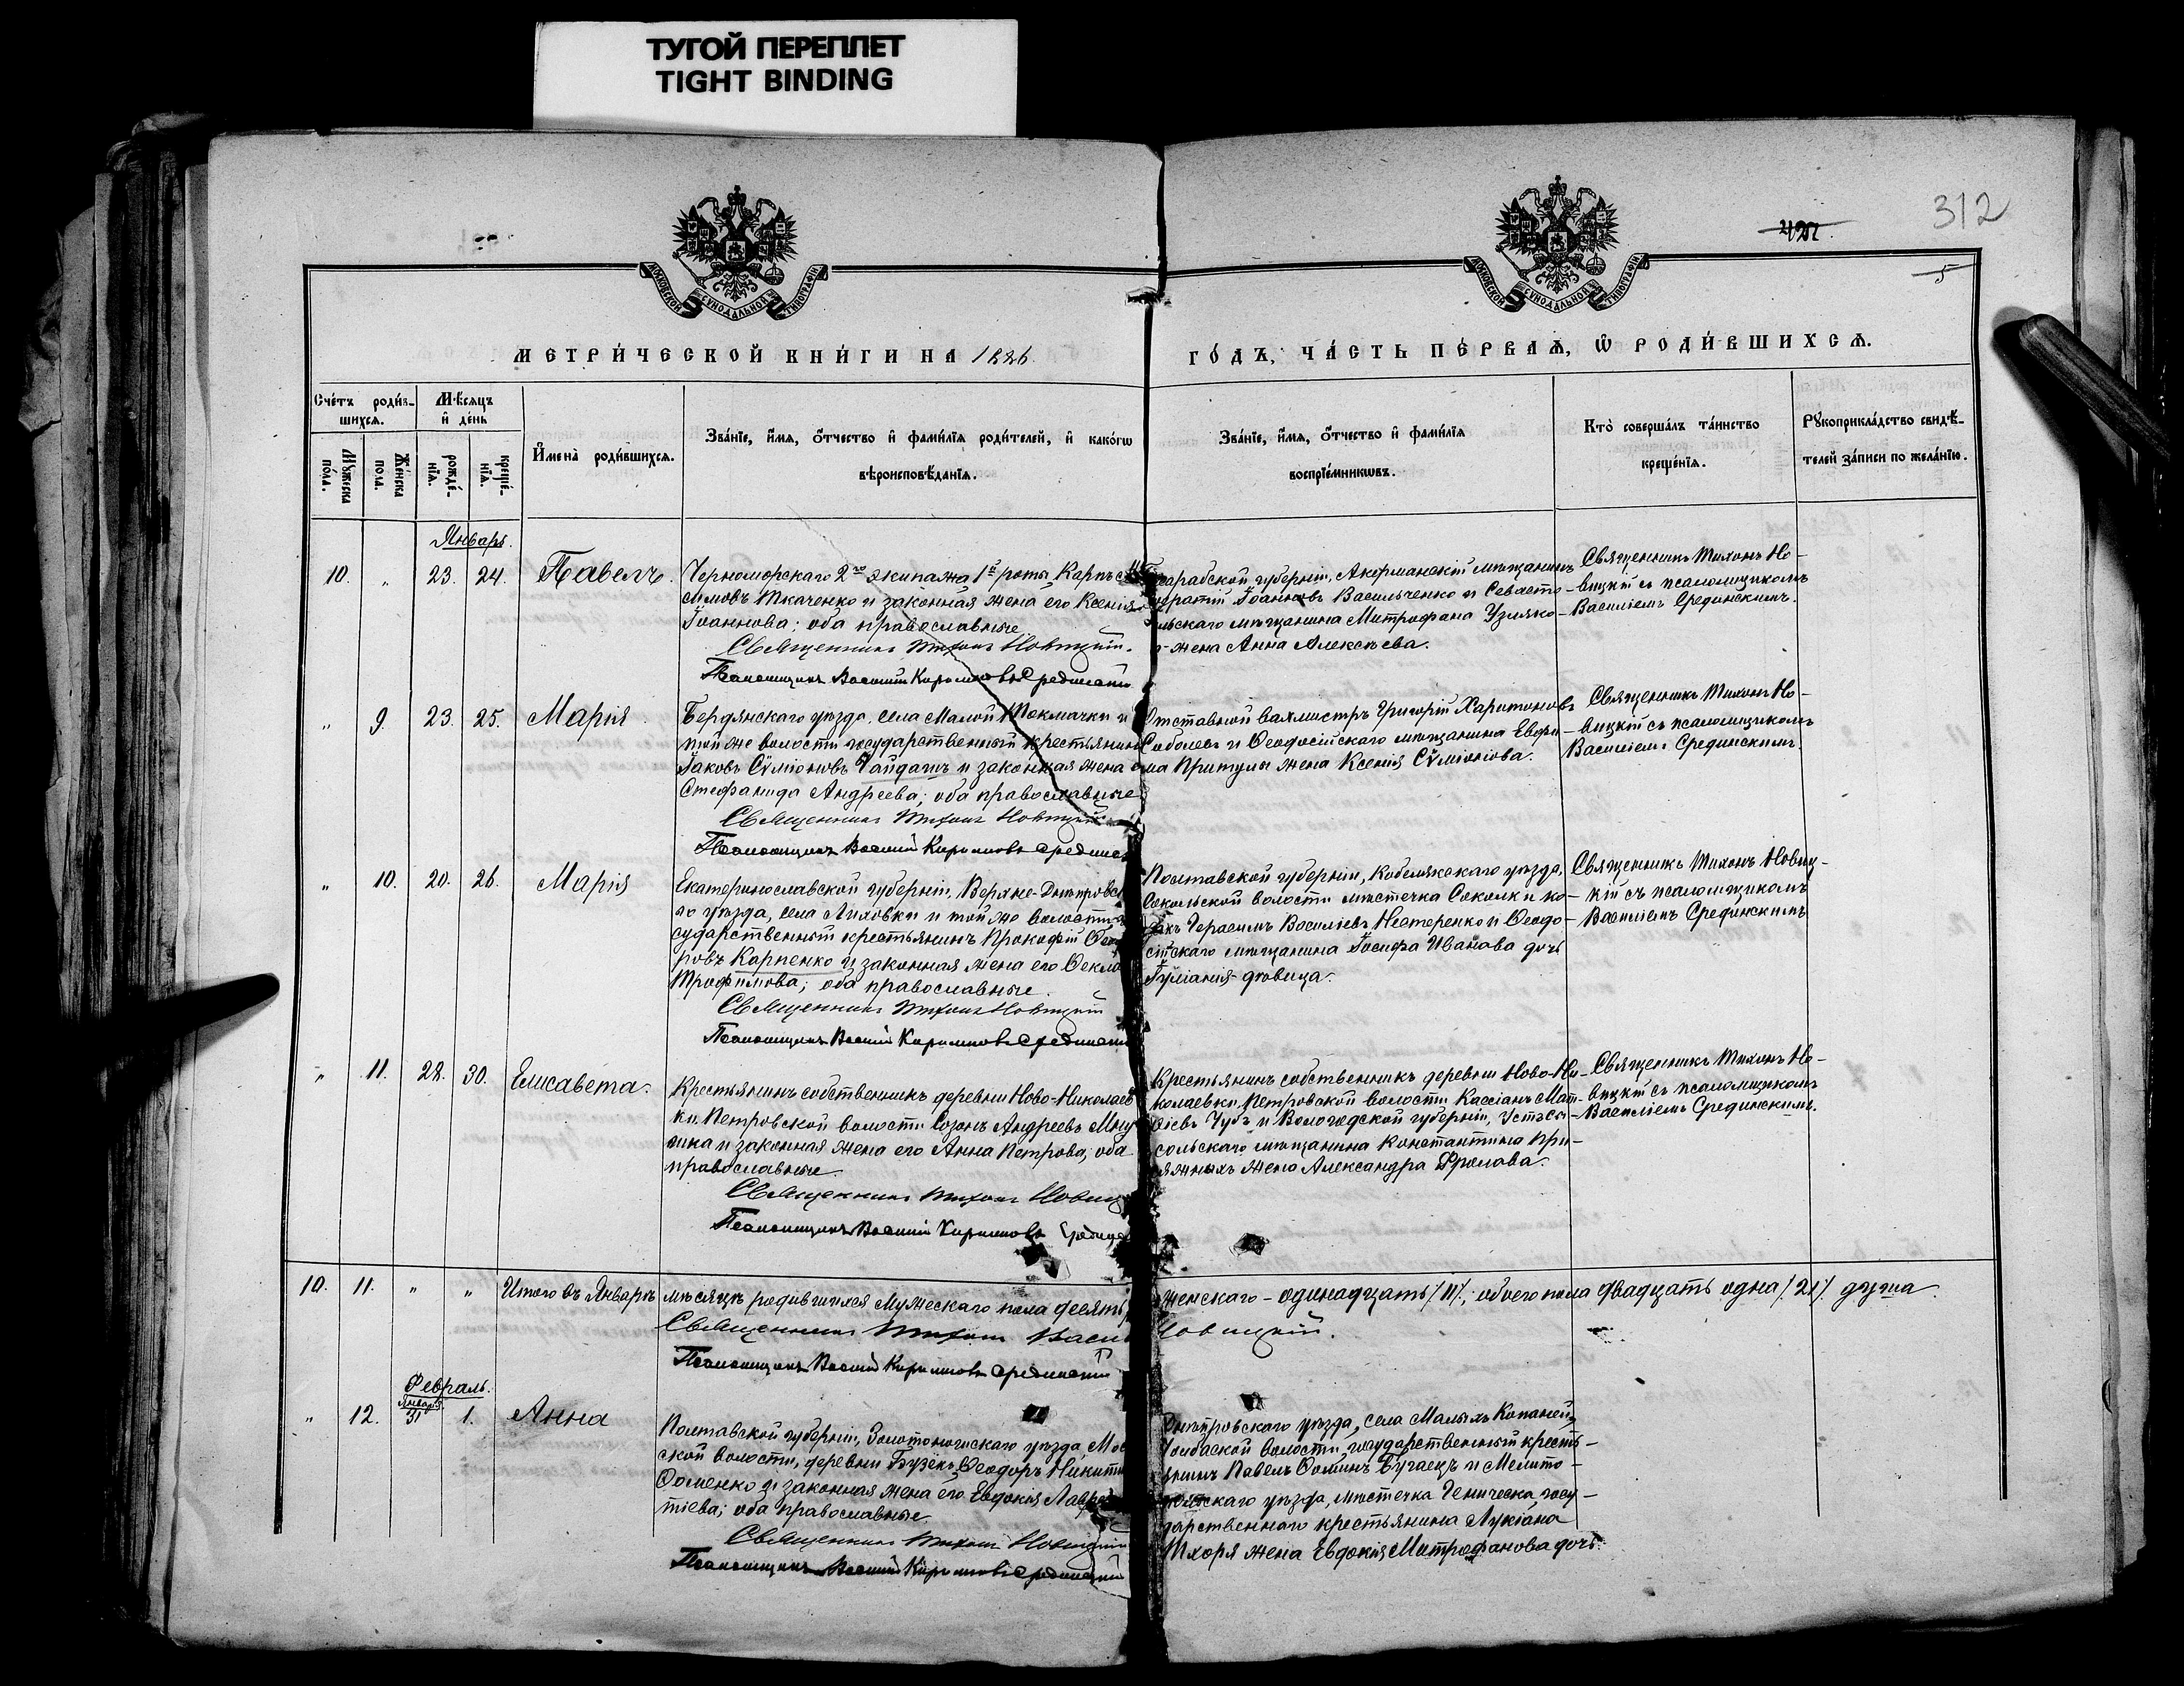 ТУГОЙ ПЕРЕПЛЕТ
TIGHT BINDING
312
5
МОСКОВСКОЙ СѴНОДАЛЬНОЙ ТИПОГРАФІИ
МОСКОВСКОЙ СѴНОДАЛЬНОЙ ТИПОГРАФІИ
МЕТРИ́ЧЕСКОЙ КНИ́ГИ НА 1886
ГО́ДЪ, ЧА́СТЬ ПЕ́РВАѦ, Ѡ҆ РОДИ́ВШИХСѦ.
Сче́тъ роди́в-
шихсѧ.
Мѣ́сѧцъ
и҆ де́нь
Мꙋ́жеска по́ла.
Же́нска пола.
рожде́-нїѧ.
креще́-нїѧ.
И҆мена̀ роди́вшихсѧ.
Зва́нїе, и҆́мѧ, о҆́тчество и҆ фами́лїѧ роди́телей, и҆ како́гѡ
вѣроисповѣ́данїѧ.
Зва́нїе, и҆́мѧ, о҆́тчество и҆ фами́лїѧ
воспрїе́мникѡвъ.
Кто̀ соверша́лъ та́инство
креще́нїѧ.
Рꙋкоприкла́дство свидѣ́-
телей за́писи по жела́нїю.
Январь.
10. „ 23. 24. Павелъ.
Черноморскаго 2го экипажа 1й роты Карпъ
симовъ Ткаченко и законная жена его Ксенія
Іоаннова; оба православные
Священникъ Тихонъ Новицкій.
Псаломщикъ Василій Кирилловъ Срединскій
сарабской губерніи, Акерманскій мѣщанинъ
Іоанновъ Васильченко и Севасто-
льскаго мѣщанина Митрофана Узляко-
жена Анна Алексѣева.
Священникъ Тихонъ Но-
вицкій съ псаломщикомъ
Василіемъ Срединскимъ.
„ 9. 23. 25. Марія.
Бердянскаго уѣзда, села Малой Токмачки и
той же волости государственный крестьянинъ
Іаковъ Сѵміоновъ Гайдашъ и законная жена
Стефанида Андреева; оба православные
Священникъ Тихонъ Новицкій
Псаломщикъ Василій Кирилловъ Срединск
Отставной вахмистръ Григорій Харитоновъ
Соболевъ и Ѳеодосійскаго мѣщанина Евфи-
ма Притулы жена Ксенія Сѵміонова.
Священникъ Тихонъ Но-
вицкій съ псаломщикомъ
Василіемъ Срединскимъ
„ 10. 20. 26. Марія
Екатеринославской губерніи, Верхне-Днѣпровск
го уѣзда, села Лиховки и той же волости го
сударственный крестьянинъ Прокофій Ѳео
ровъ Карпенко и законная жена его Ѳекла
Трофимова; оба православные.
Священникъ Тихонъ Новицкій
Псаломщикъ Василій Кирилловъ Срединскій
Полтавской губерніи, Кобелякскаго уѣзда,
Сокольской волости мѣстечка Соколки ко-
закъ Герасимъ Василіевъ Нестеренко и Ѳеодо-
сійскаго мѣщанина Іосифа Иванова дочь
Іуліанія-дѣвица.
Священникъ Тихонъ Новиц-
кій съ псаломщикомъ
Василіемъ Срединскимъ
„ 11. 28. 30. Елисавета.
Крестьянинъ собственникъ деревни Ново-Николаев
ки, Петровской волости Созонъ Андреевъ
и законная жена его Анна Петрова; оба
православные.
Священникъ Тихонъ Новиц
Псаломщикъ Василій Кирилловъ Срединск
Крестьянинъ собственникъ деревни Ново-Ни-
колаевки, Петровской волости Кассіанъ Мат-
ѳіевъ Чубъ и Вологодской губерніи, Устьсы-
сольскаго мѣщанина Константина При-
жена Александра Фролова.
Священникъ Тихонъ Но-
вицкій съ псаломщикомъ
Василіемъ Срединскимъ.
10. 11. „ „ Итого въ Январѣ мѣсяцѣ родившихся мужескаго пола десять женскаго - одинадцать /11/, обоего пола двадцать одна /21/ душа.
Священникъ Тихонъ Васи Новицкій.
Псаломщикъ Василій Кирилловъ Срединскій
Февраль.
„ 12. Января 31 1. Анна
Полтавской губерніи, Золотоношскаго уѣзда
ской волости, деревни Бузекъ, Ѳеодоръ Никити
Ѳоменко и законная жена его Евдокія Лавре
тіева; оба православные.
Священникъ Тихонъ Новицкій
Псаломщикъ Василій Кирилловъ Срединскій
Днѣпровскаго уѣзда, села Малыхъ Копаней,
волости, государственный кресть-
янинъ Павелъ Ѳоминъ Бугаецъ и Мелито-
польскаго уѣзда, мѣстечка Геническа, госу-
дарственнаго крестьянина Лукіана
Тхоря жена Евдокія Митрофанова дочь.